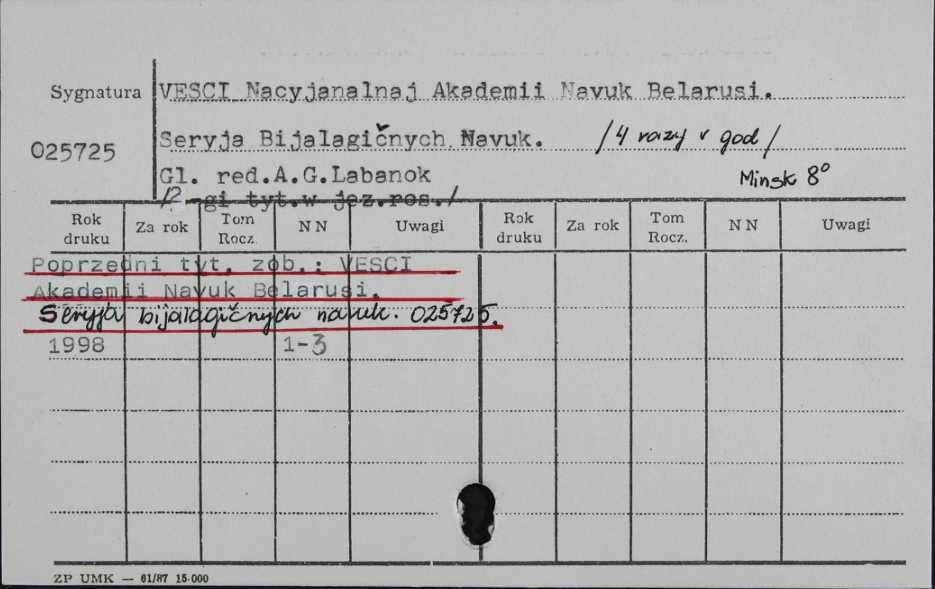 Sygnatura VESCI Nacyjanalnaj Akademii Navuk Belarusi.
025725 Seryja Bijalagičnych Navuk. /4 razy v god/
Gl. red.A.G.Labanok Minsk 8°
/2-gi tyt.w jez.ros./
Rok druku Za rok Tom Rocz. NN Uwagi Rok druku Za rok Tom Rocz. NN Uwagi
Poprzedni tyt. zob.: VESCI
Akademii Navuk Belarusi.
Seryja bijalagičnych navuk. 025725.
1998 1-3
ZP UMK — 61/87 15·000